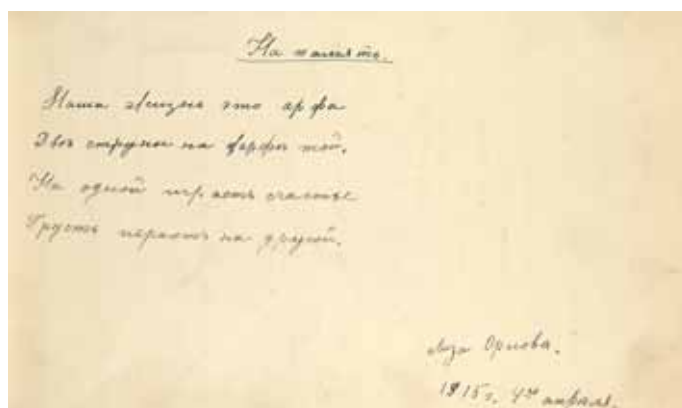 На память.
Наша жизнь это арфа
Двѣ струны на арфѣ той,
На одной играетъ счастье
Грусть играетъ на другой.
Лиза Орлова.
1915 г. 4го апрѣля.